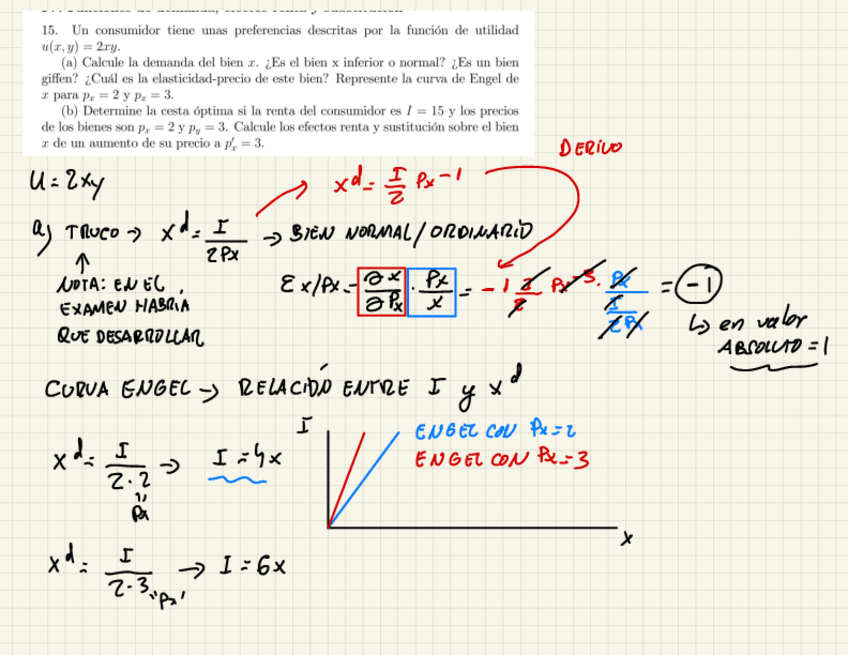 15. Un consumidor tiene unas preferencias descritas por la función de utilidad
u(x, y) = 2xy.
(a) Calcule la demanda del bien x. ¿Es el bien x inferior o normal? ¿Es un bien
giffen? ¿Cuál es la elasticidad-precio de este bien? Represente la curva de Engel de
x para pₓ = 2 y pₓ = 3.
(b) Determine la cesta óptima si la renta del consumidor es I = 15 y los precios
de los bienes son pₓ = 2 y p_y = 3. Calcule los efectos renta y sustitución sobre el bien
x de un aumento de su precio a p′ₓ = 3.
DERIVO
U = 2xy
x^d = I/2 Px^-1
a) TRUCO → x^d = I/2Px → BIEN NORMAL/ORDINARIO
↑
NOTA: EN EL
EXAMEN HABRIA
QUE DESARROLLAR
Ex/Px = ∂x/∂Px · Px/x = -1 I/2 · = -1
↳ en valor
ABSOLUTO = 1
CURVA ENGEL → RELACIÓN ENTRE I y x^d
I
ENGEL CON Px = 2
ENGEL CON Px = 3
x^d = I/2·2 → I = 4x
Px
x
x^d = I/2·3 → I = 6x
"Px'